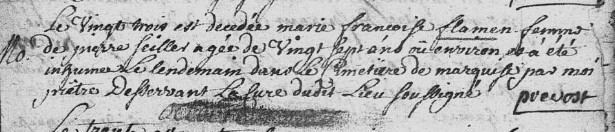 Le vingt trois est decedée marie francoise flamen femme
de pierre seiller agée de vingt sept ans ou environ et a été
inhumée Le lendemain dans Le Cimetiere de marquise par moi
pretre Desservant La Cure dudit Lieu soussigné prevost
Le trente